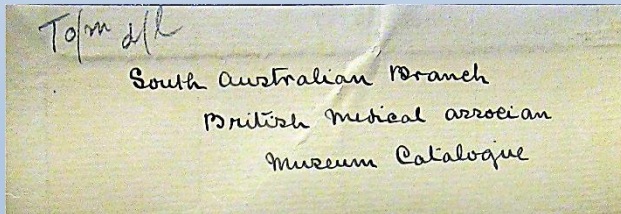 South Australian Branch
British Medical associan
Museum Catalogue